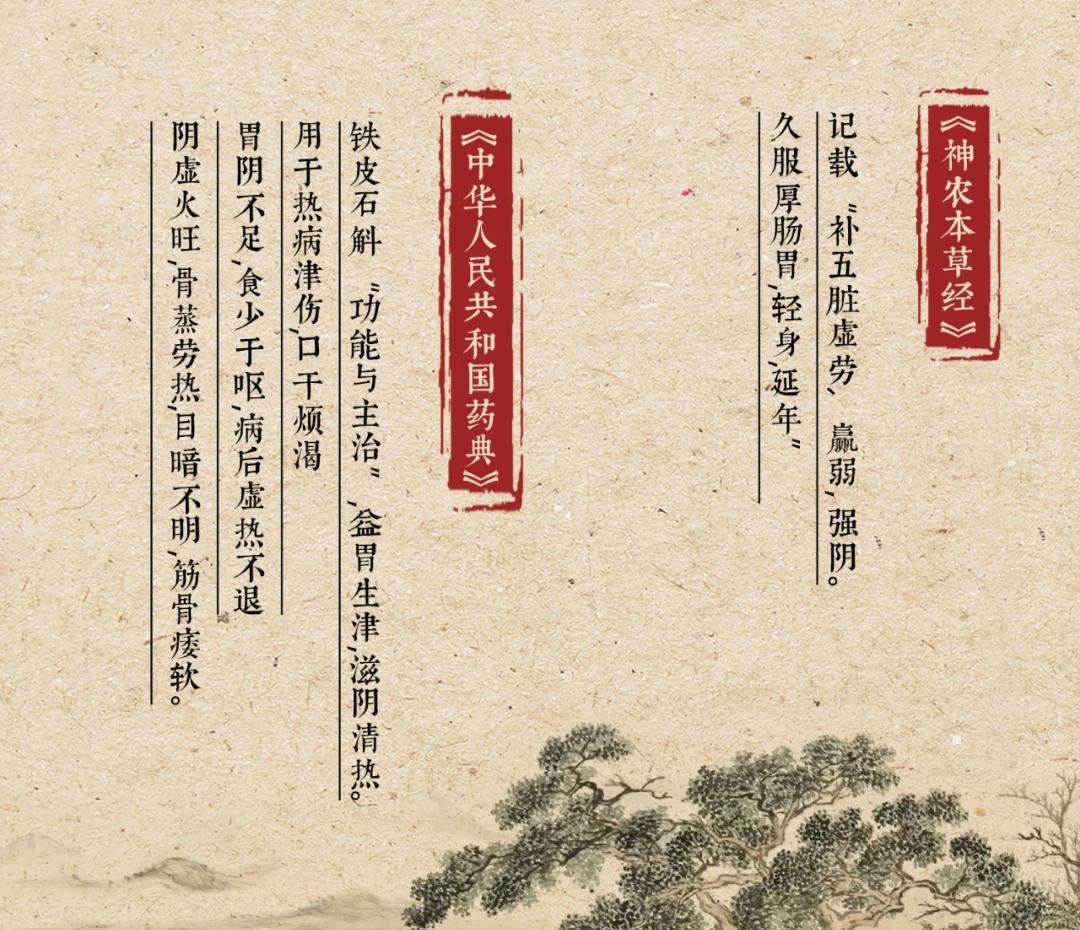 《神农本草经》
记载“补五脏虚劳、赢弱,强阴。
久服厚肠胃,轻身,延年”
《中华人民共和国药典》
铁皮石斛“功能与主治”,益胃生津,滋阴清热。
用于热病津伤,口干烦渴
胃阴不足,食少于呕,病后虚热不退
阴虚火旺,骨蒸劳热,目暗不明,筋骨痿软。